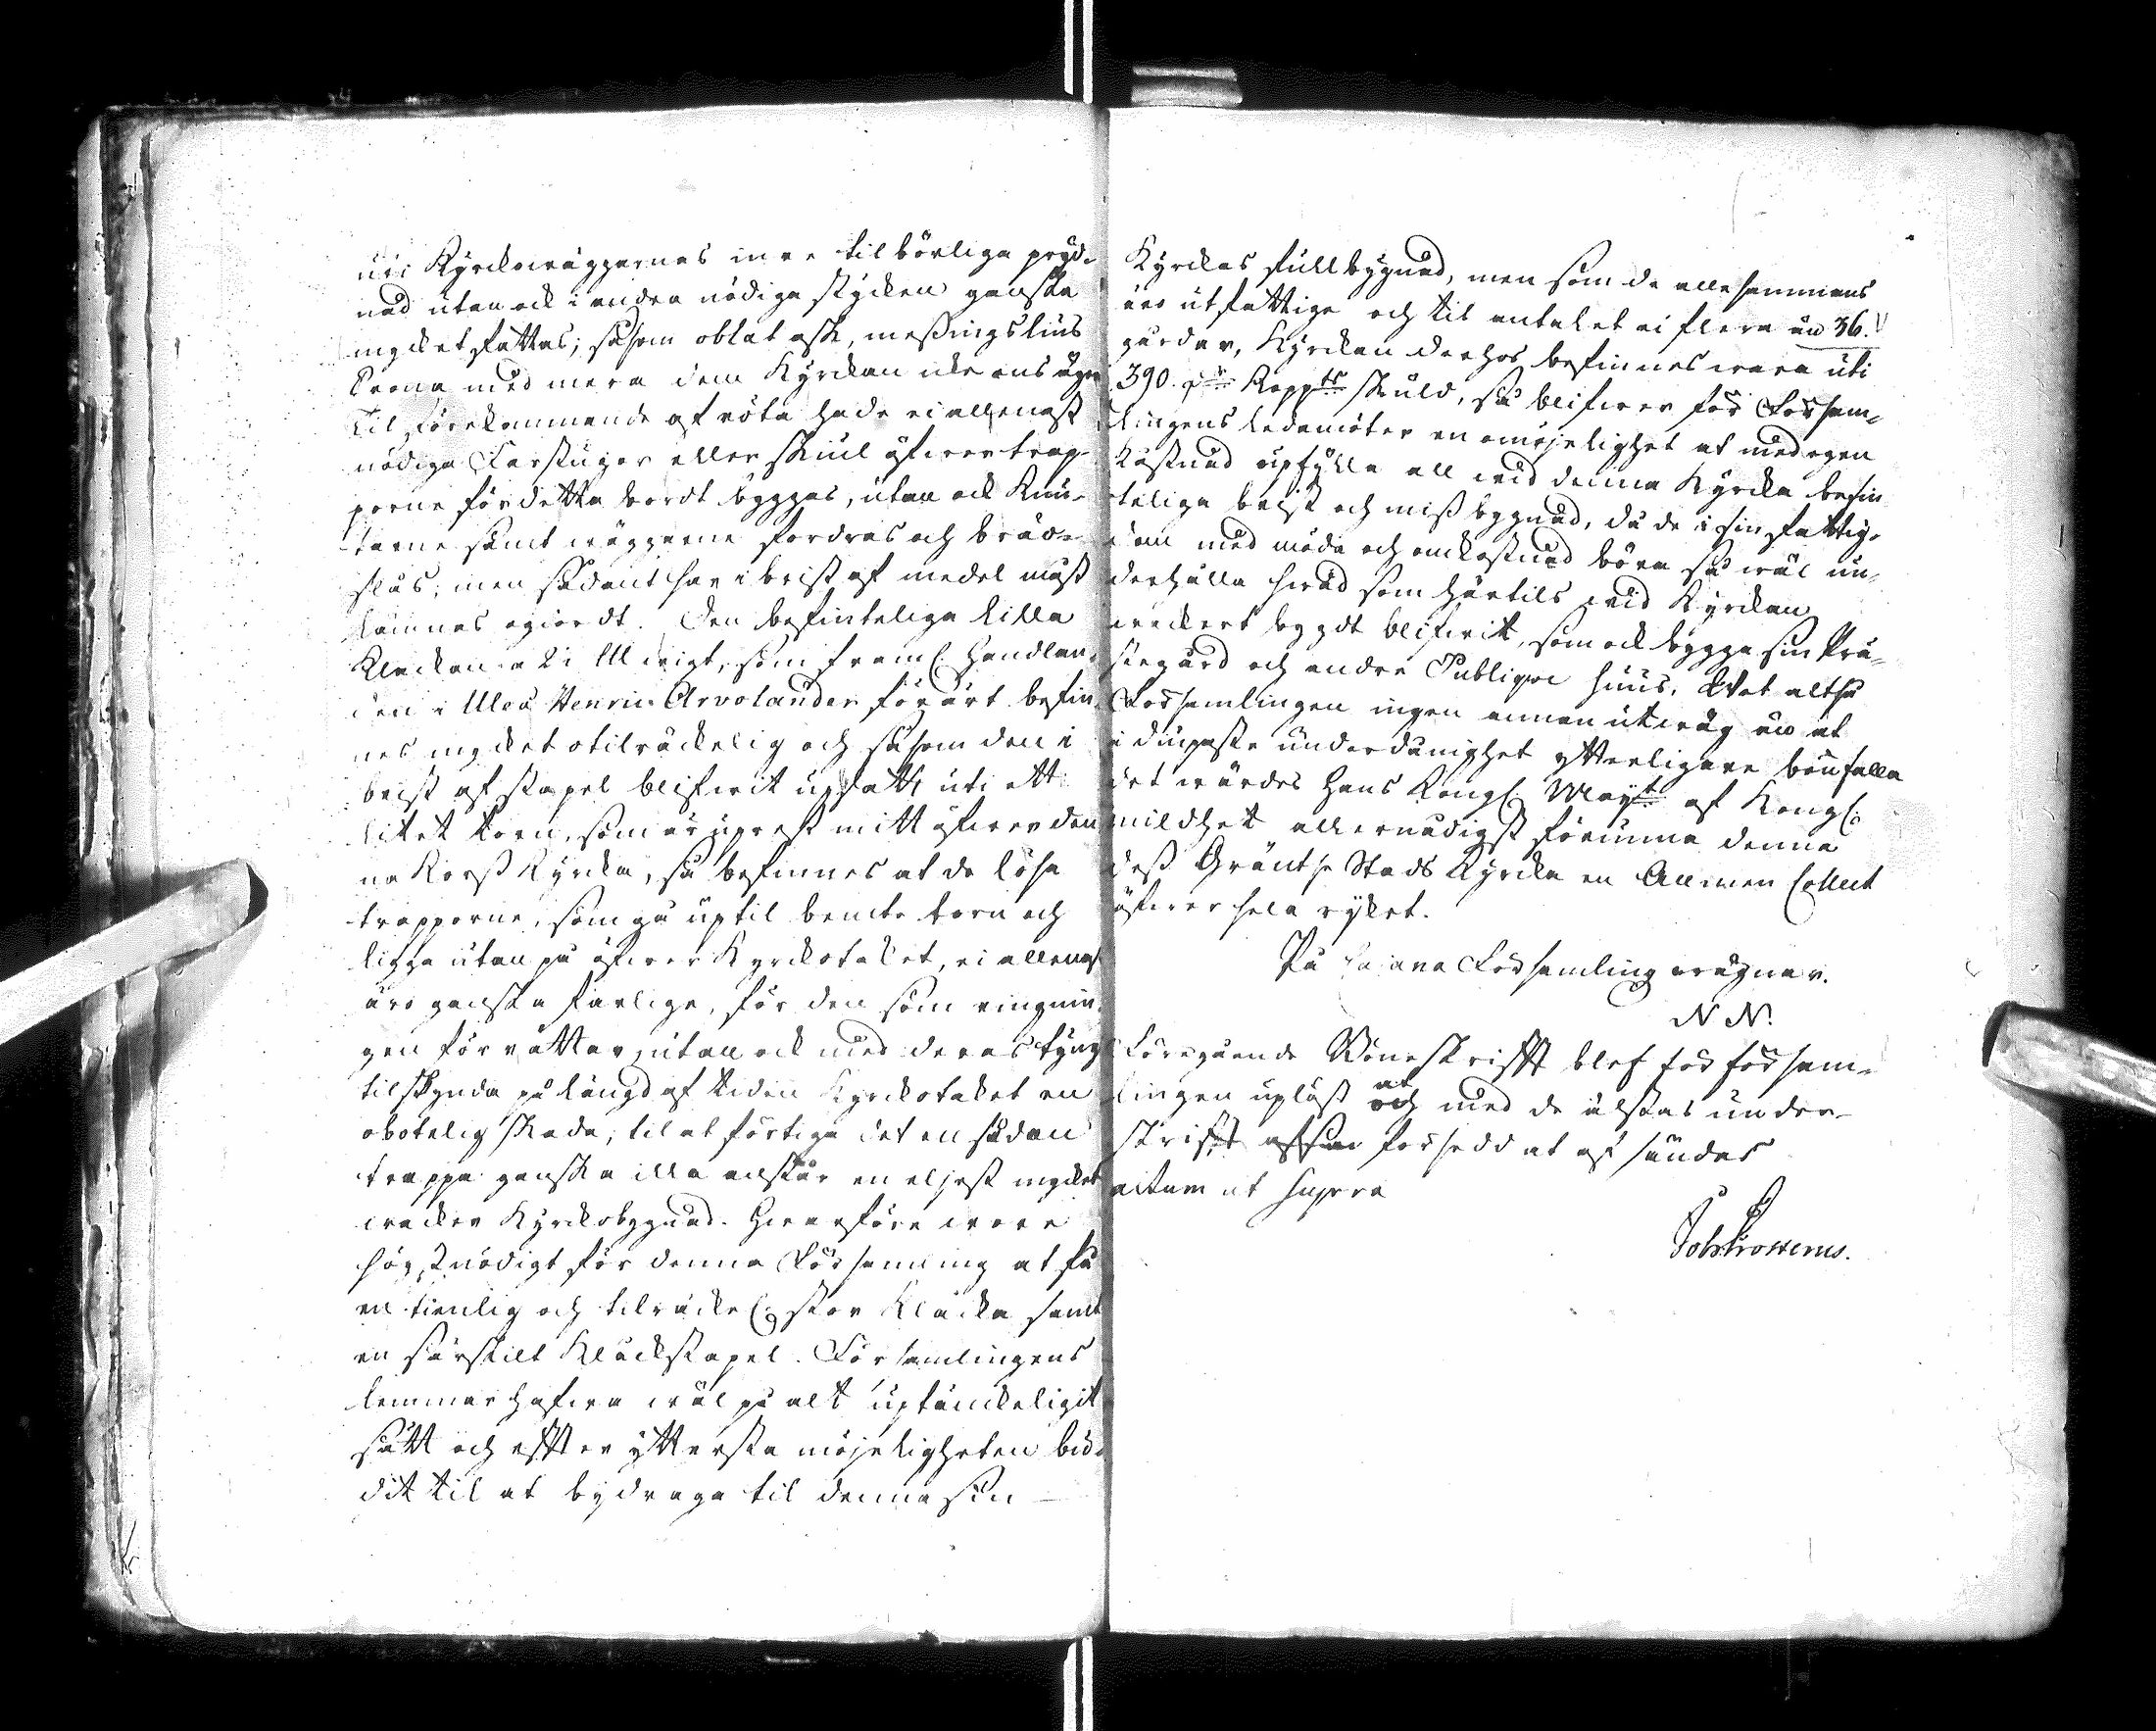 uti Kyrckowäggarnas inre tilbörliga pryd-
nad utan ock i andra nödiga stycken ganska
mycket fattas; såsom oblat ask, messings lius
Crona med mera dem Kyrckan icke ens äger
Til förekommande af röta hade ei allenast
nödiga Farstugor eller skiul öfwer trap-
porne för detta bordt byggas, utan ock Knu-
tarne samt wäggarne fordras och bräd-
slås; men sådant har i brist af medel måst
lämnas ogiordt. Den befinteliga lilla
Klockan a 2 i Ll wigt, som framl. Handlan-
den i Uleå Henric Arvolander förärt befin-
nes mycket otilräckelig och såsom den i
brist af stapel blifwit upsatt uti ett
litet torn, som är uprest mitt öfwer den
na Korss Kyrcka, så befinnes at de lösa
trapporne, som gå up til bemte torn och
ligga utan på öfwer Kyrckotaket, ei allenast
äro ganska farliga, för den som ringnin-
gen förrättar, utan ock med deras tyngd
tilskynda på längd af tiden Kyrckotaket en
obotelig skada; til at förtiga det en sådan
trappa ganska illa anstår en eljest mycket
wacker Kyrckobygnad. Hwarföre wore
högst nödigt för denna Församling at få
en tienlig och tilräckel. stor Klåcka samt
en särskilt Klåckstapel. Församlingens
lemmar hafwa wäl på alt uptänckeligit
sätt och effter ytterska möjeligheten bud-
dit til at bydraga til denna sin
Kyrckas fullbygnad, men som de allesammans
äro utfattige och til antalet ei flera än 36.
gårdar, Kyrckan derhos befinnes wara uti
390. dr Koppts skuld, så blifwer för Församl-
lingens ledamöter en omöjelighet at med egen
kostnad upfylla all wid denna Kyrcka befin
teliga brist och miss bygnad, då de i sin fattig-
dom med möda och omkostnad böra så wäl un-
derhålla hwad som härtils wid Kyrckan
wackert bygdt blifwit, som ock bygga sin Prä-
stegård och andra Publique huus. Wet altså
Församlingen ingen annan utwäg än at
i diupaste underdånighet ytterligare bönfalla
det wärdes Hans Kongl. Mayt af Kongl.
mildhet allernådigst förunna denna
dess Gräntse Stads Kyrcka en Allmen Collect
öfwer hela ryket.
På Cajana Församling wägnar.
N N.
Föregående Böneskrifft blef för försam-
lingen upläst och at med de älstas under-
skrifft försedd at af sändas
actum ut supra